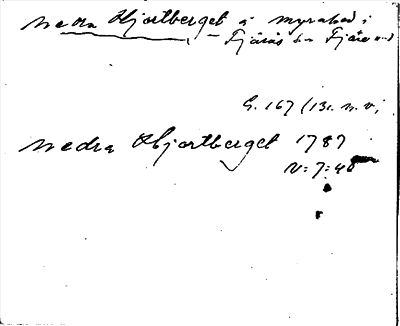 Nedra Hjortberget å Myrabol i
Fjärås sn Fjäre hd
G. 167 (131. n. v.)
Nedra Hjortberget 1787
N: 7: 48